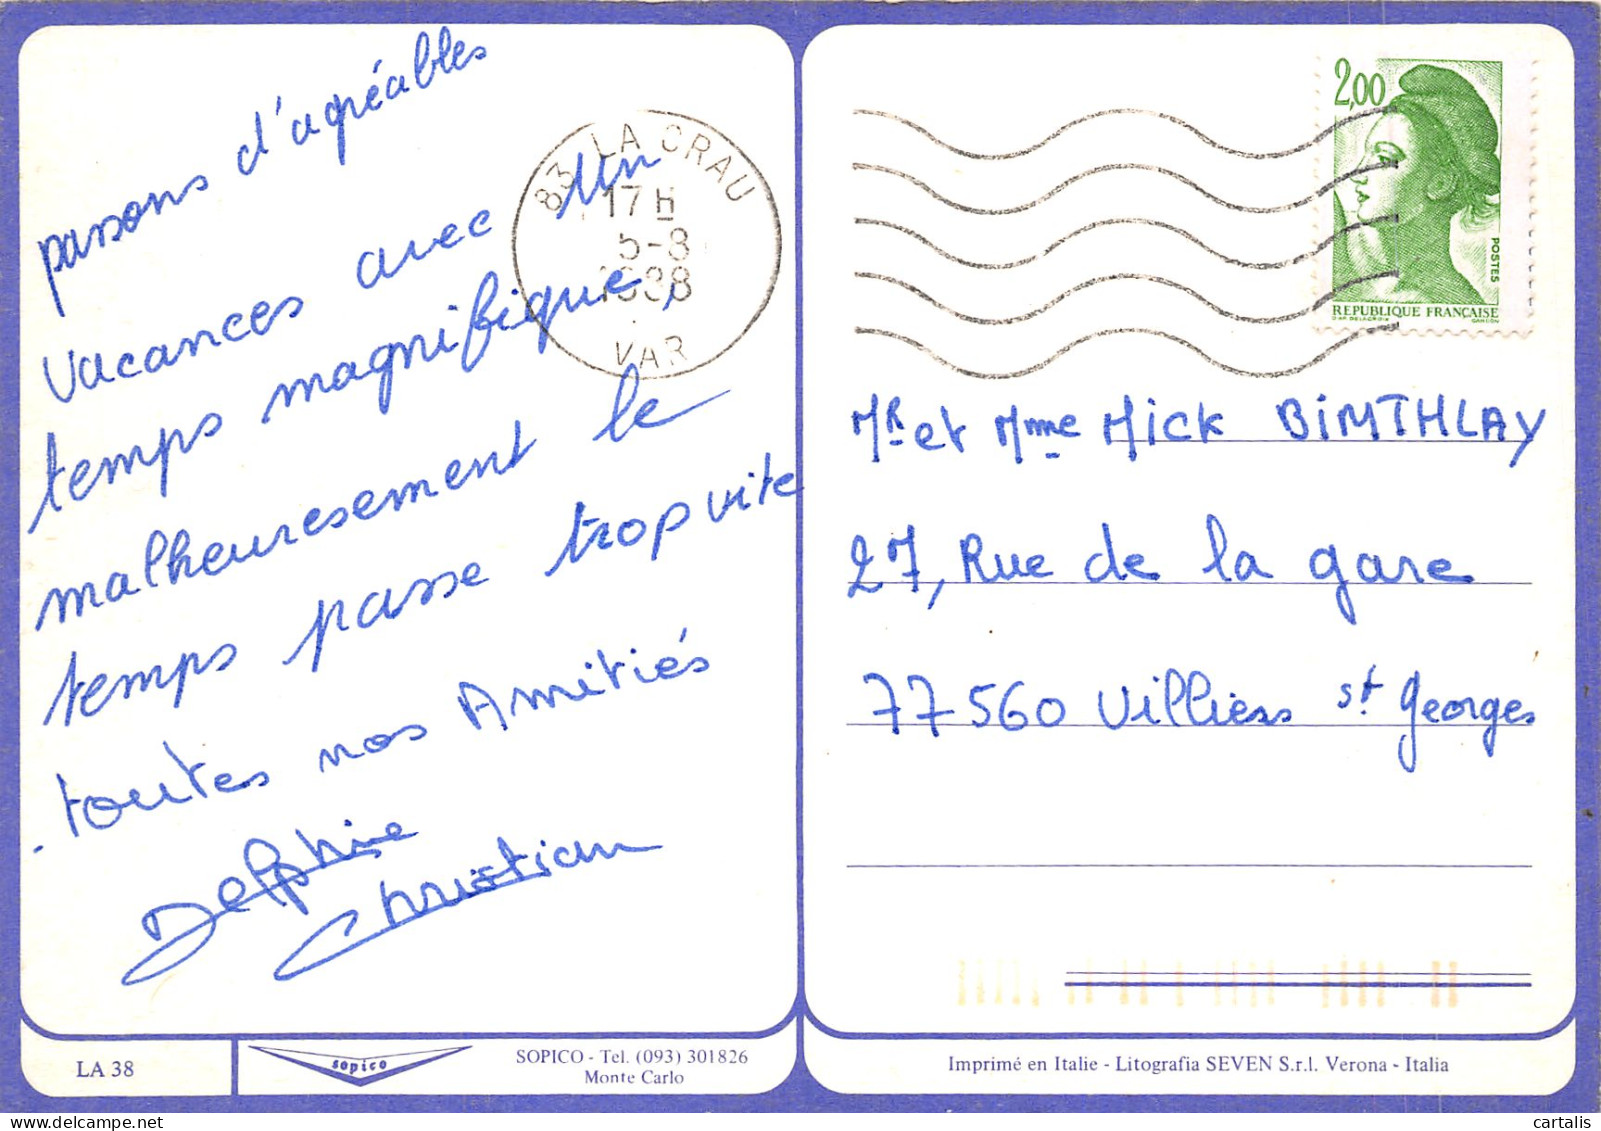 passons d'agréables
vacances avec un
temps magnifique,
malheuresement le
temps passe trop vite
toutes nos Amitiés
Delphine
Christian
83 LA CRAU
17 H
5-8
1988
VAR
2,00
POSTES
REPUBLIQUE FRANÇAISE
D'AP. DELACROIX GANDON
Mr et Mme Mick BIMTHLAY
27, Rue de la gare
77560 Villiers st Georges
LA 38
sopico
SOPICO - Tel. (093) 301826
Monte Carlo
Imprimé en Italie - Litografia SEVEN S.r.l. Verona - Italia
cartalis